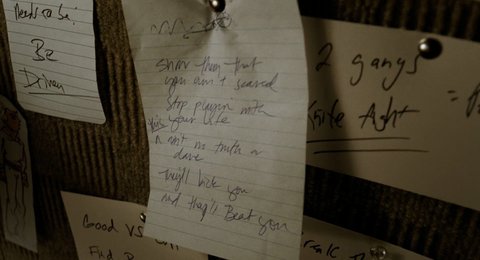 Needs to be
Be
Driven
Show them that
you ain't scared
Stop playin with
your life
This
ain't no truth or
dare
They'll kick you
and they'll Beat you
2 gangs
Knife fight
=
Good VS
Find